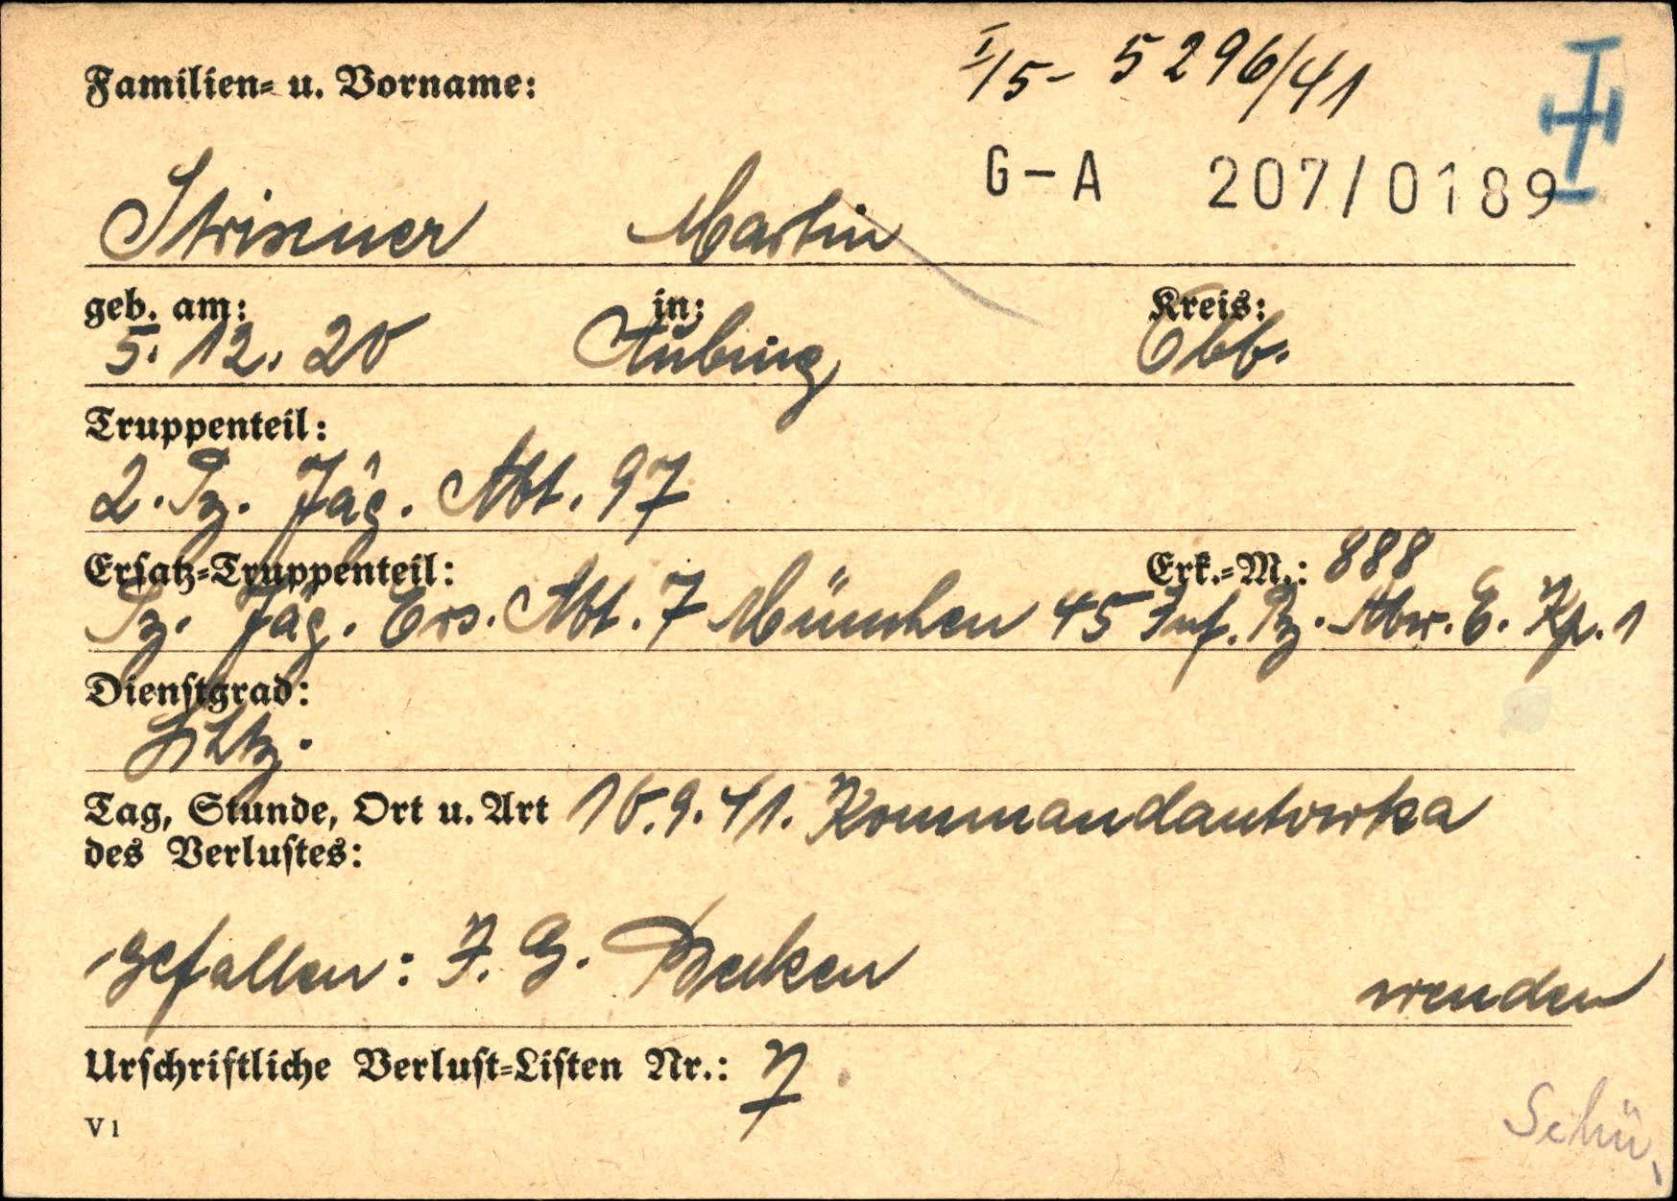 I/5- 5296/41
Familien- u. Vorname:
G-A 207/0189
Strixner Martin
geb. am: in: Kreis:
5. 12. 20 Aubing Ebb.
Truppenteil:
2. Pz. Jäg. Abt. 97
Ersatz-Truppenteil: Erk.-M.: 888
Pz. Jäg. Ers. Abt. 7 München 45 Inf. Pz. Abw. E. Kp. 1
Dienstgrad:
Schtz.
Tag, Stunde, Ort u. Art 16.9.41. Kommandantowka
des Verlustes:
gefallen: I. G. Becken
wenden
Urschriftliche Verlust-Listen Nr.: 7
V 1
Schü.